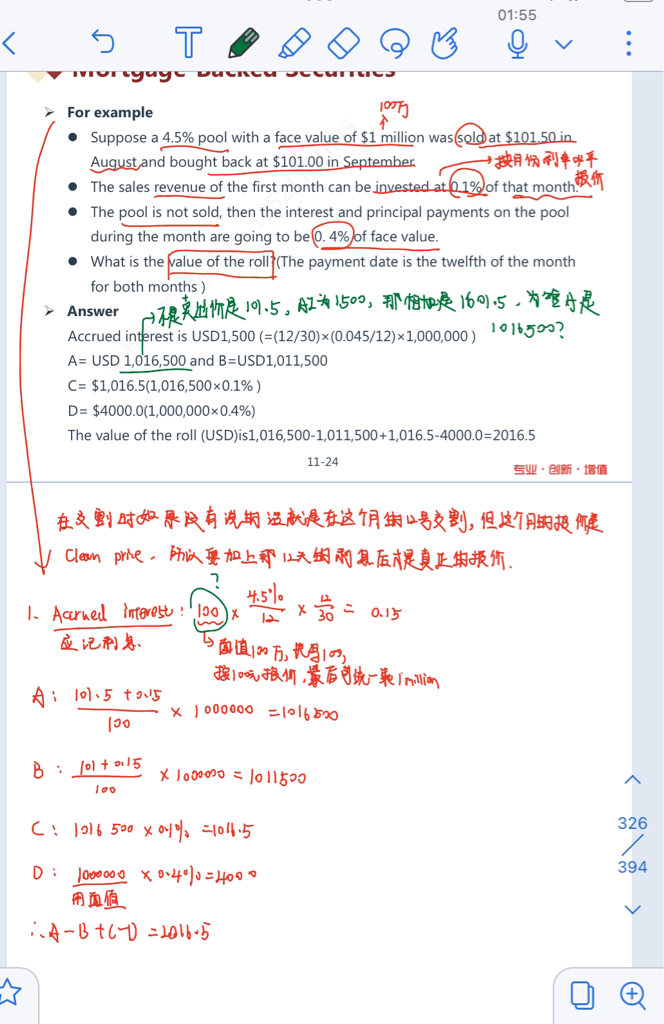 01:55
Mortgage Backed Securities
➤ For example
100万
● Suppose a 4.5% pool with a face value of $1 million was sold at $101.50 in
August and bought back at $101.00 in September.
按月份利率水平
报价
● The sales revenue of the first month can be invested at 0.1% of that month.
● The pool is not sold, then the interest and principal payments on the pool
during the month are going to be 0. 4% of face value.
● What is the value of the roll?(The payment date is the twelfth of the month
for both months )
➤ Answer
不是卖出价是101.5，AI为1500，那相加是1601.5，为啥A是
1016500?
Accrued interest is USD1,500 (=(12/30)×(0.045/12)×1,000,000 )
A= USD 1,016,500 and B=USD1,011,500
C= $1,016.5(1,016,500×0.1% )
D= $4000.0(1,000,000×0.4%)
The value of the roll (USD)is1,016,500-1,011,500+1,016.5-4000.0=2016.5
11-24
专业·创新·增值
在交割时如果没有说的话就是在这个月的12号交割，但这个月的报价是
Clean price. 所以要加上那12天的利息后才是真正的报价.
?
1. Accrued interest: 100 × 4.5%/12 × 12/30 = 0.15
应记利息.
面值100万，先用100,
按100元报价，最后再统一乘1million
A: (101.5+0.15)/100 × 1000000 =1016500
B: (101+0.15)/100 × 1000000 = 1011500
C: 1016500 × 0.1% =1016.5
D: 1000000 × 0.4% =4000
用面值
∴A-B+C-D =2016.5
326
394